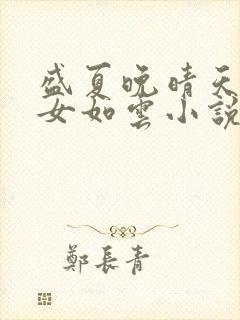 盛夏晚晴天
女如雲小說
鄭長青